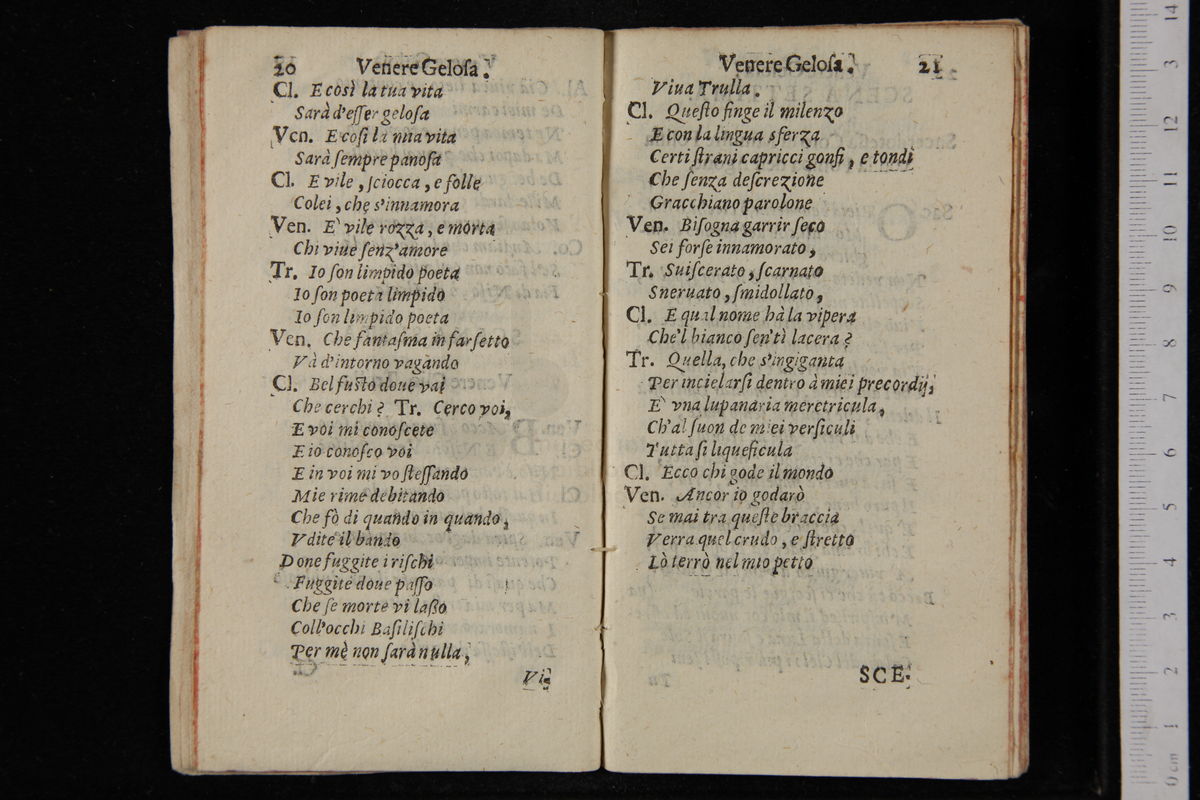 20 Venere Gelosa.
Cl. E così la tua vita
Sarà d'esser gelosa
Ven. E così la mia vita
Sarà sempre panosa
Cl. E vile, sciocca, e folle
Colei, che s'innamora
Ven. E' vile rozza, e morta
Chi viue senz'amore
Tr. Io son limpido poeta
Io son poeta limpido
Io son limpido poeta
Ven. Che fantasma in farsetto
Và d'intorno vagando
Cl. Bel fusto doue vai
Che cerchi? Tr. Cerco voi,
E voi mi conoscete
E io conosco voi
E in voi mi vo stessando
Mie rime debitando
Che fò di quando in quando,
Vdite il bando
Done fuggite i rischi
Fuggite doue passo
Che se morte vi lasso
Coll'occhi Basilischi
Per mè non sarà nulla,
Vi-
Venere Gelosa. 21
Viua Trulla.
Cl. Questo finge il milenzo
E con la lingua sferza
Certi strani capricci gonfi, e tondi
Che senza descrezione
Gracchiano parolone
Ven. Bisogna garrir seco
Sei forse innamorato,
Tr. Suiscerato, scarnato
Sneruato, smidollato,
Cl. E qual nome hà la vipera
Che'l bianco sen'tì lacera?
Tr. Quella, che s'ingiganta
Per incielarsi dentro à miei precordij,
E' vna lupanaria meretricula,
Ch'al suon de miei versiculi
Tutta si liqueficula
Cl. Ecco chi gode il mondo
Ven. Ancor io godarò
Se mai tra queste braccia
Verra quel crudo, e stretto
Lò terrò nel mio petto
SCE-
0 cm 1 2 3 4 5 6 7 8 9 10 11 12 3 14